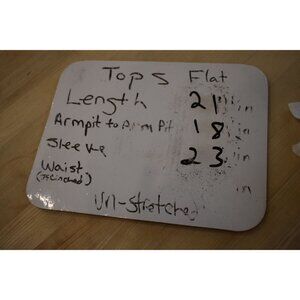 Tops Flat
Length 21 in
Armpit to Arm Pit 18 in
Sleeve 23 in
Waist in
Un-Stretched